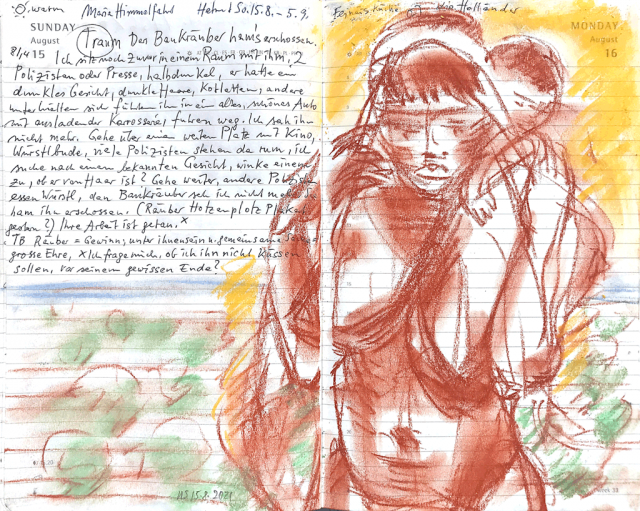 warm Maria Himmelfahrt So. 15.8. - 5.9.
die Holländer
SUNDAY
August
15
MONDAY
August
16
Traum Den Bankräuber hams erschossen.
Ich sitz noch zuvor in einem Raum mit ihm, 2
Polizisten oder Presse, halbdunkel, er hatte ein
dunkles Gesicht, dunkle Haare, Kotletten, andere
unterhalten sich führen ihn in ein altes, schönes Auto
mit ausladender Karosserie, fuhren weg. Ich sah ihn
nicht mehr. Gehe über einen weiten Platz mit Kino,
Wurstbude, viele Polizisten stehen da rum, ich
suche nach einem bekannten Gesicht, winke einem
zu, ob er von Haar ist? Gehe weiter, andere Polizisten
essen Wurstl, den Bankräuber seh ich nicht mehr
ham ihn erschossen. (Räuber Hotzenplotz Plakat
gesehen?) Ihre Arbeit ist getan. x
TB Räuber = Gewinn; unter ihnen sein u. gemeinsame
grosse Ehre, x Ich frage mich, ob ich ihn nicht küssen
sollen, vor seinem gewissen Ende?
15.8.2021